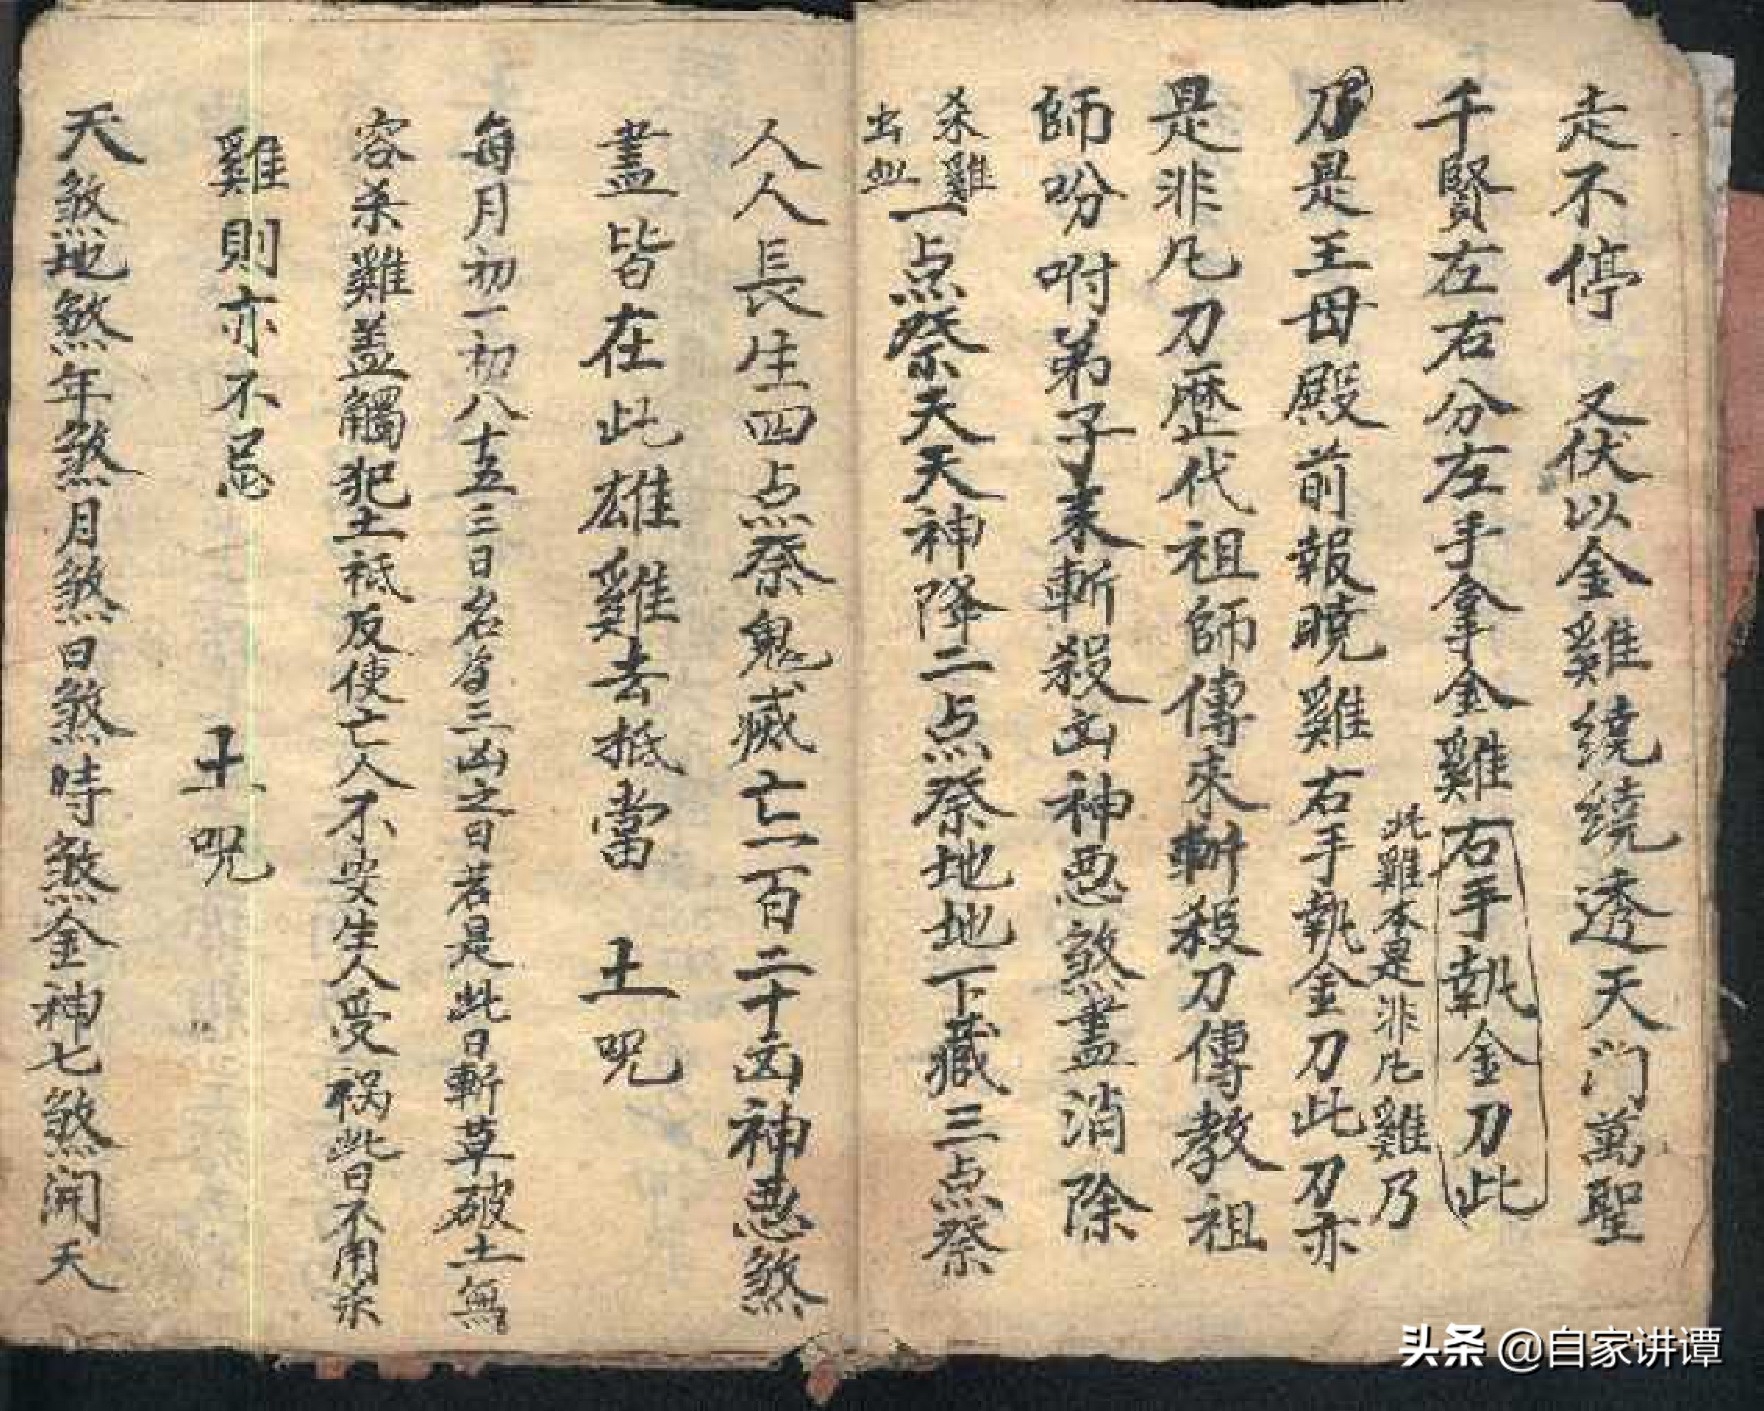 走不停 又伏以金雞繞繞透天门萬聖
千賢左右分左手拿金雞右手執金刀此
此雞本是非凡雞乃
刀是王母殿前報曉雞右手執金刀此刀亦
是非凡刀歷代祖師傳來斬殺刀傳教祖
師吩咐弟子來斬殺凶神恶煞盡消除
杀雞
出血
一点祭天天神降二点祭地地下藏三点祭
人人長生四点祭鬼滅亡一百二十凶神恶煞
盡皆在此雄雞去抵當 土呪
每月初一初八十五三日名為三凶之日若是此日斬草破土無
容杀雞盖觸犯土祗反使亡人不安生人受禍此日不用杀
雞則亦不忌
土呪
天煞地煞年煞月煞日煞時煞金神七煞開天
头条 @自家讲谭